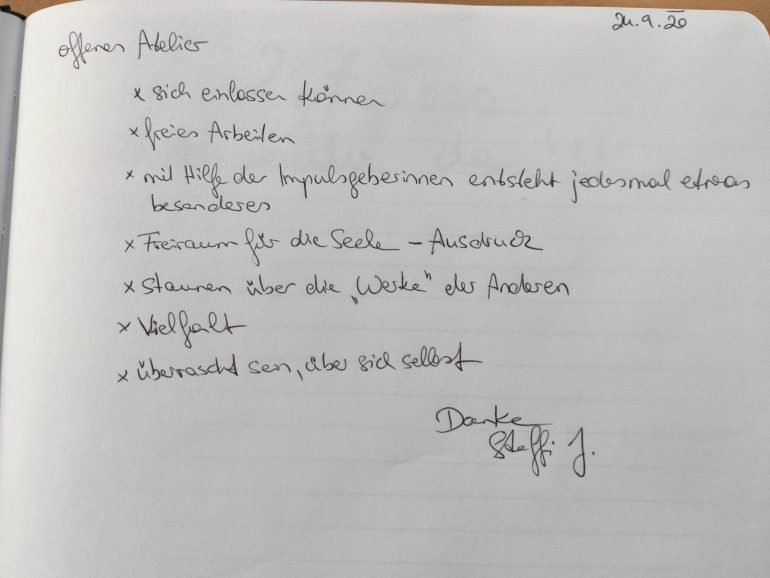 24.9.20
offenes Atelier
x sich einlassen können
x freies Arbeiten
x mit Hilfe der Impulsgeberinnen entsteht jedesmal etwas
besonderes
x Freiraum für die Seele – Ausdruck
x Staunen über die „Werke“ der Anderen
x Vielfalt
x überrascht sein, über sich selbst
Danke
Steffi J.